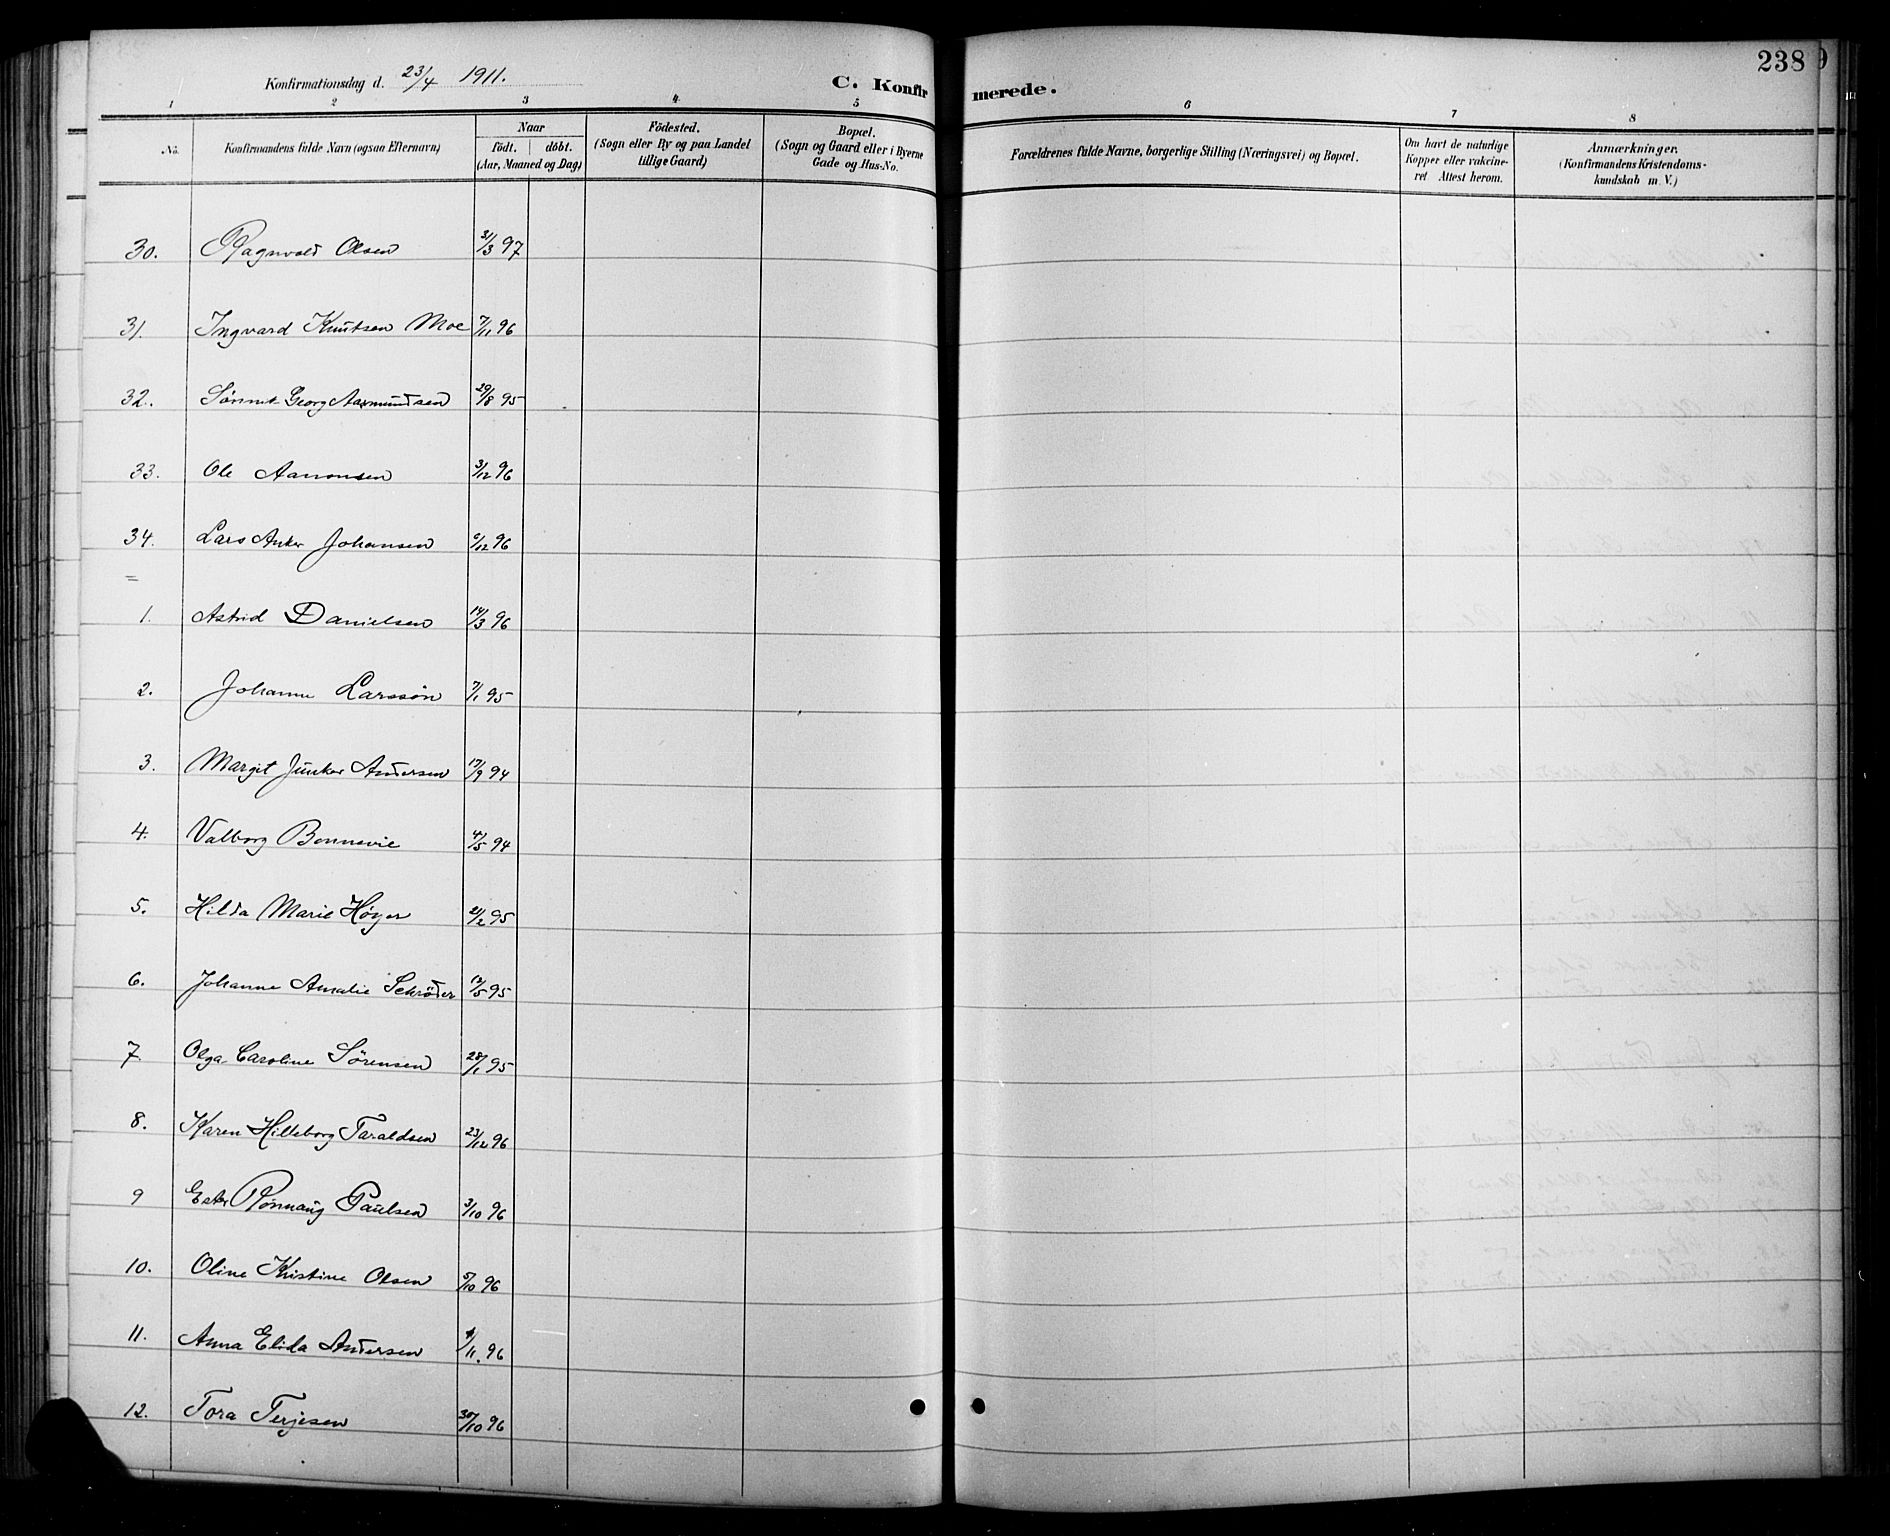 238
Konfirmationsdag d. 23/4 1911.
C. Konfirmerede.
1 2 3 4 5 6 7 8
No.
Konfirmandens fulde Navn (ogsaa Efternavn)
Naar
födt. döbt.
(Aar, Maaned og Dag)
Födested.
(Sogn eller By og paa Landet
tillige Gaard)
Bopæl.
(Sogn og Gaard eller i Byerne
Gade og Hus-No.
Forældrenes fulde Navne, borgerlige Stilling (Næringsvei) og Bopæl.
Om havt de naturlige
Kopper eller vakcine-
ret Attest herom.
Anmærkninger.
(Konfirmandens Kristendoms-
kundskab m. V.)
30. Ragnvald Olsen 31/3 97
31. Ingvard Knutsen Moe 7/11 96
32. Georg Aasmundsen 29/8 95
33. Ole Aanonsen 3/12 96
34. Lars Anker Johansen 6/12 96
=
1. Astrid Danielsen 14/3 96
2. Johanne Larssön 7/1 95
3. Margit Junker Andersen 17/9 94
4. Valborg Bonnevie 4/5 94
5. Hilda Marie Høyer 21/2 95
6. Johanne Amalie Schrøder 12/5 95
7 Olga Caroline Sørensen 28/1 95
8. Karen Hilleborg Taraldsen 23/12 96
9 Ester Rønnaug Paulsen 3/10 96
10. Oline Kristine Olsen 5/10 96
11. Anna Elida Andersen 1/11. 96
12. Tora Terjesen 30/10 96